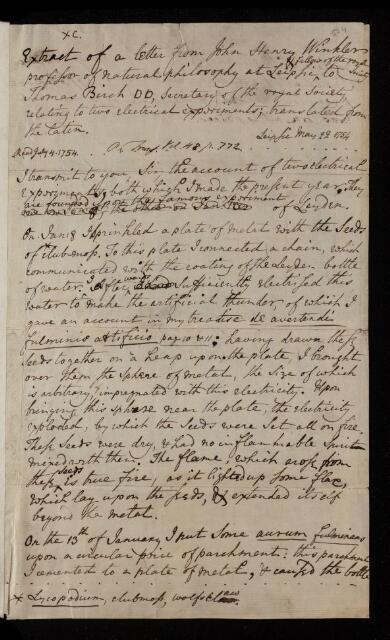 XC.
Extract of a letter from John Henry Winkler
& fellow of the royal Society
professor of natural philosophy at Leipsic, to
Thomas Birch DD, Secretary of the royal Society,
relating to two electrical experiments; translated from
the Latin.
Leipsic May 22. 1754
Read July 4. 1754.
Trans. Vol. 48. p. 772.
I transmit to you, Sir the account of two electrical
experiments both which I made the present year. They
are founded upon the famous experiment
of Leyden.
On Jan. 8 I sprinkled a plate of metal with the Seeds
of clubmoss. To this plate I connected a chain, which
communicated with the coating of the Leyden bottle
of water. I afterwards sufficiently electrised this
water to make the artificial thunder of which I
gave an account in my treatise de avertendi
fulminis artificio, pag. 10 & 11: having drawn these
Seeds together on a Heap upon the plate, I brought
over them the sphere of metal, the Size of which
is arbitrary, impregnated with this electricity. Upon
bringing this sphere near the plate, the electricity
exploded, by which the Seeds were Set all on fire.
These Seeds were dry, & had no inflammable Spirit
mixed with them. The flame, which arose from
these seeds is true fire, as it lighted up some flax,
which lay upon the seeds, & extended itself
beyond the metal.
On the 13th of January I put Some aurum fulminans
upon a circular piece of parchment; this parchment
I cemented to a plate of metal, & caused the bottle
* Lycopodium, clubmoss, wolfsclaw.